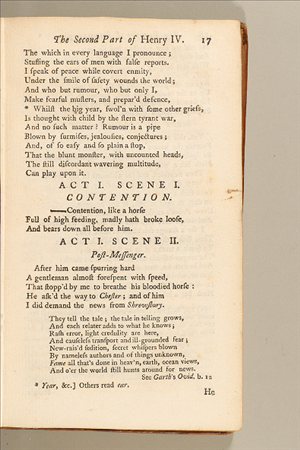 The Second Part of Henry IV. 17
The which in every language I pronounce;
Stuffing the ears of men with false reports.
I speak of peace while covert enmity,
Under the smile of safety wounds the world;
And who but rumour, who but only I,
Make fearful musters, and prepar'd defence,
* Whilst the big year, swol'n with some other griefs,
Is thought with child by the stern tyrant war,
And no such matter? Rumour is a pipe
Blown by surmises, jealousies, conjectures;
And, of so easy and so plain a stop,
That the blunt monster, with uncounted heads,
The still discordant wavering multitude,
Can play upon it.
ACT I. SCENE I.
CONTENTION.
——Contention, like a horse
Full of high feeding, madly hath broke loose,
And bears down all before him.
ACT I. SCENE II.
Post-Messenger.
After him came spurring hard
A gentleman almost forespent with speed,
That stopp'd by me to breathe his bloodied horse:
He ask'd the way to Chester; and of him
I did demand the news from Shrewsbury.
They tell the tale; the tale in telling grows,
And each relater adds to what he knows;
Rash error, light credulity are here,
And causeless transport and ill-grounded fear;
New-rais'd sedition, secret whispers blown
By nameless authors and of things unknown,
Fame all that's done in heav'n, earth, ocean views,
And o'er the world still hunts around for news.
See Garth's Ovid. b. 12
* Year, &c.] Others read ear.
He